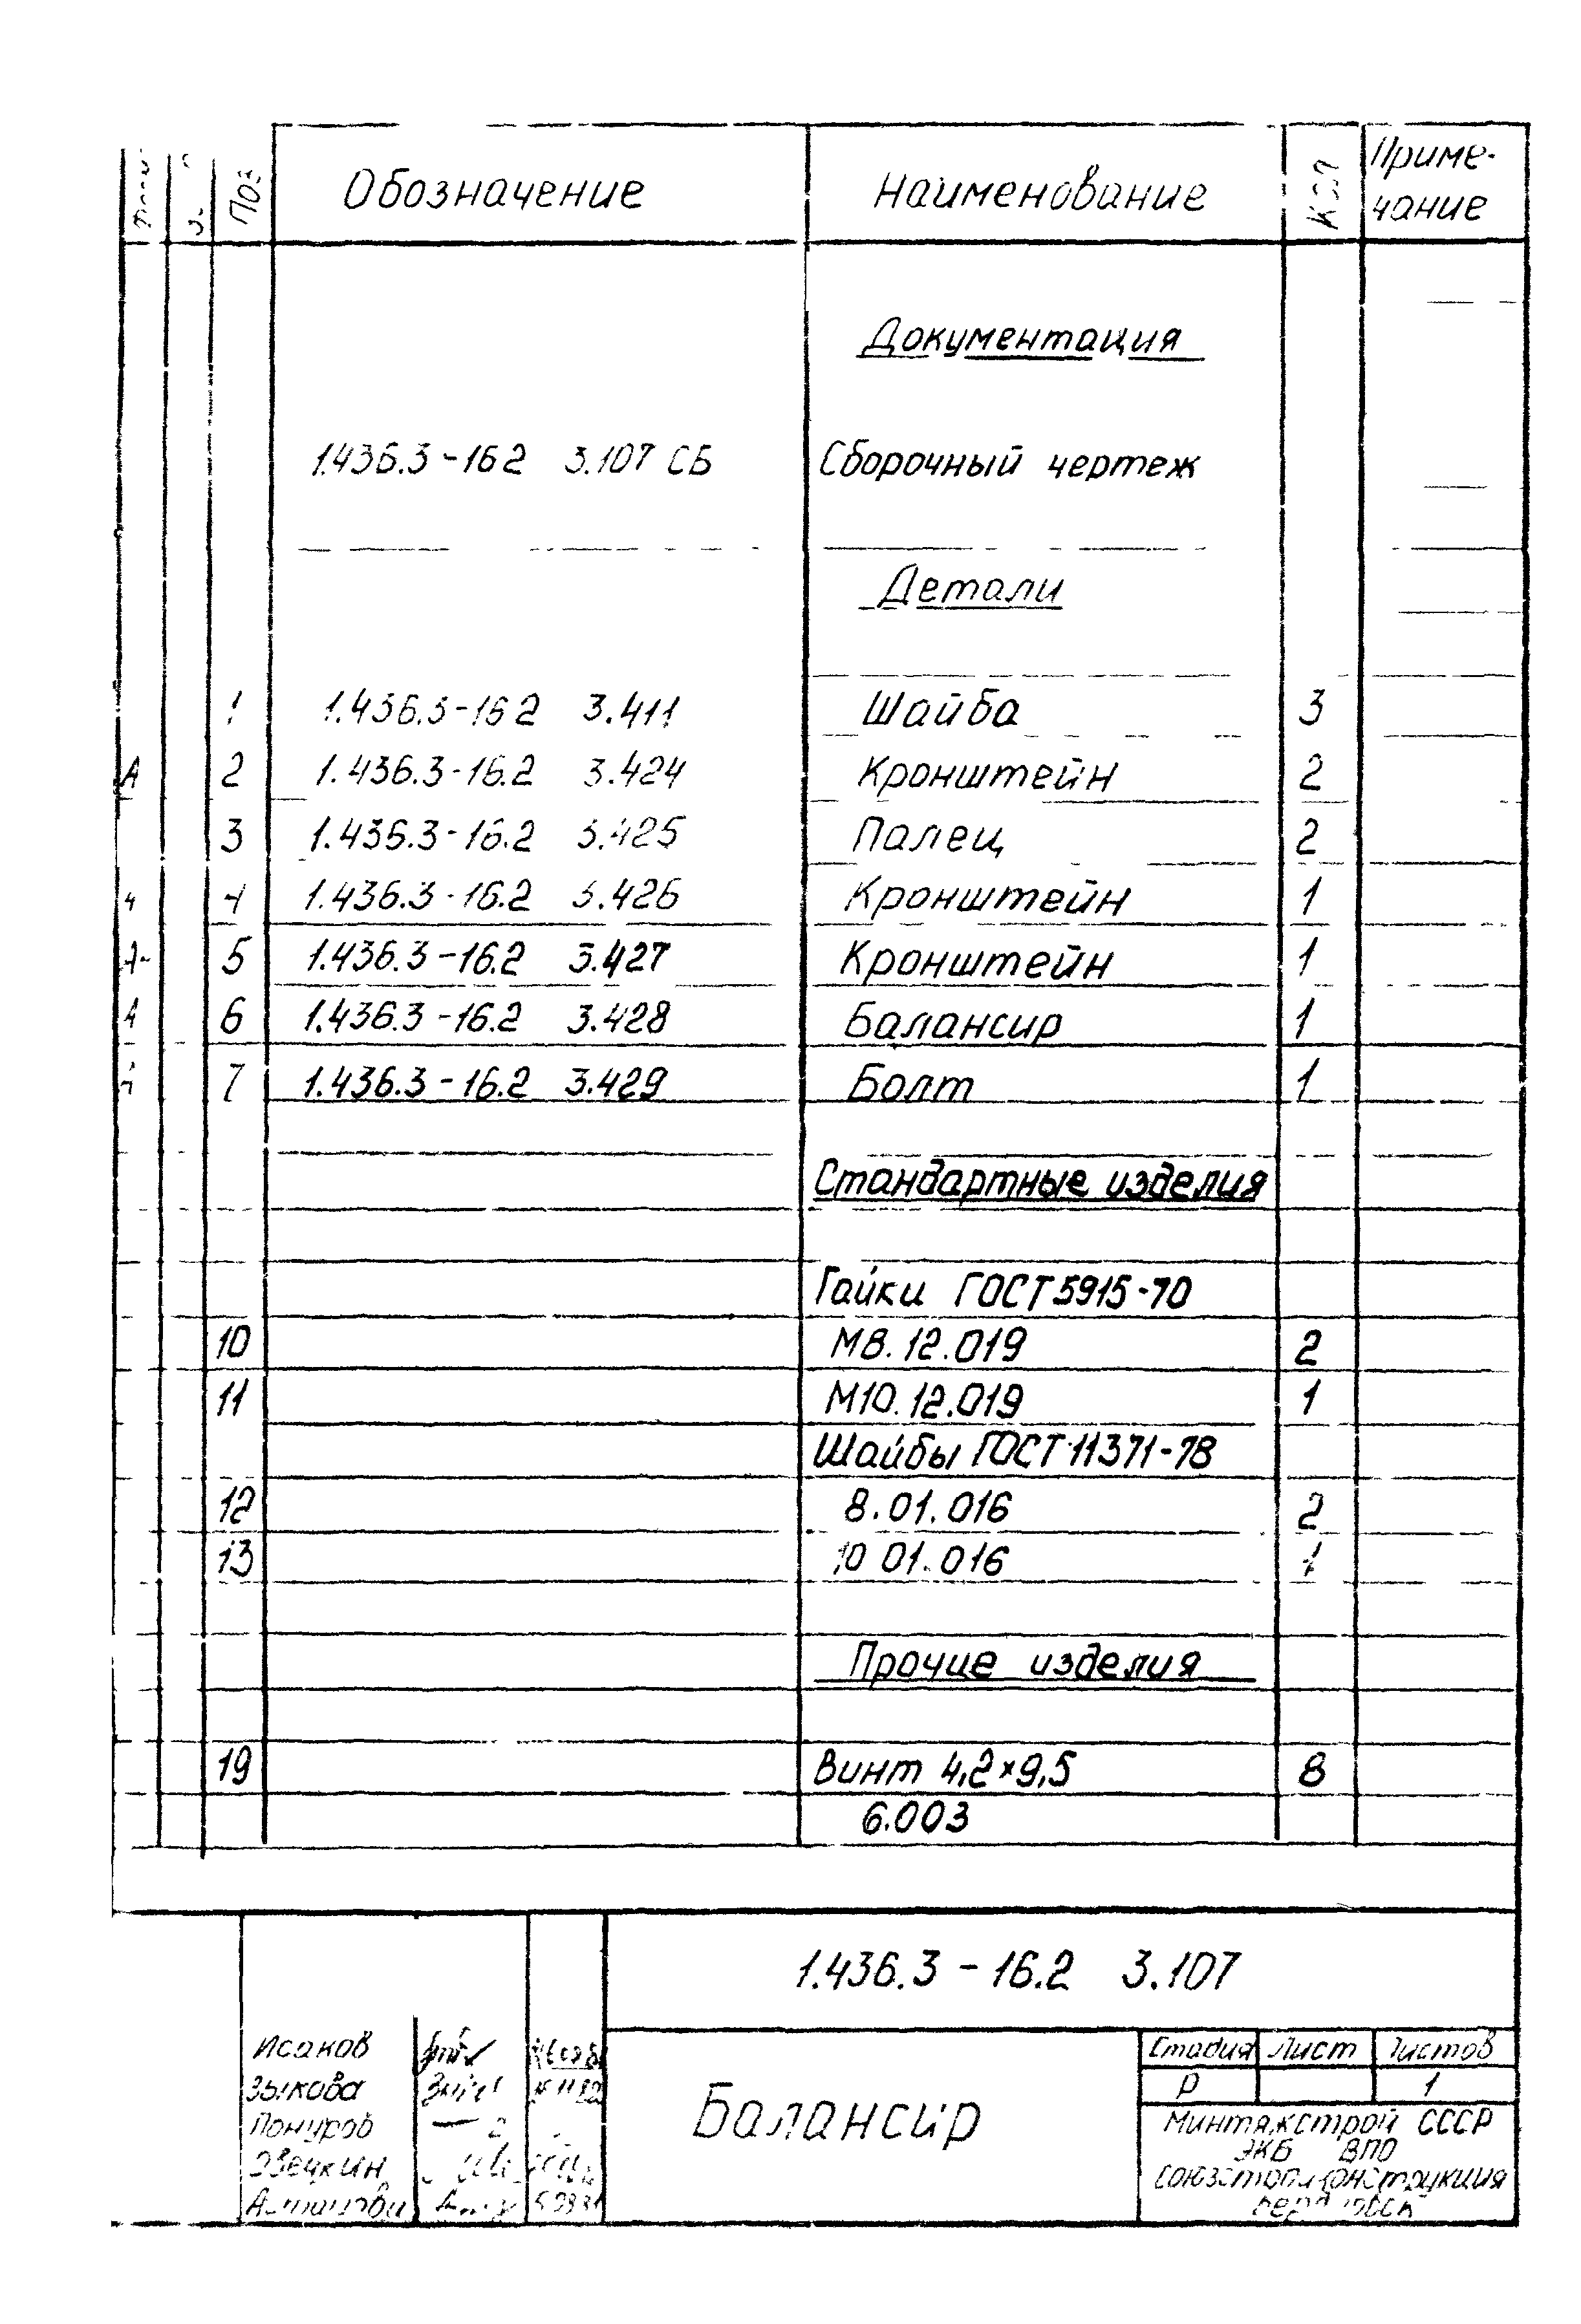 Поз Обозначение Наименование Кол Приме-
чание
Документация
1.436.3-16 2 3.107 СБ Сборочный чертеж
Детали
1 1.436.3-16 2 3.411 Шайба 3
А 2 1.436.3-16.2 3.424 Кронштейн 2
3 1.436.3-16.2 3.425 Палец 2
4 1.436.3-16.2 3.426 Кронштейн 1
5 1.436.3-16.2 3.427 Кронштейн 1
6 1.436.3-16.2 3.428 Балансир 1
7 1.436.3-16.2 3.429 Болт 1
Стандартные изделия
Гайки ГОСТ 5915-70
10 М8.12.019 2
11 М10.12.019 1
Шайбы ГОСТ 11371-78
12 8.01.016 2
13 10 01.016 1
Прочие изделия
19 Винт 4,2×9,5 8
6.003
1.436.3-16.2 3.107
Исаков
Зыкова
Понуров
Балансир
Стадия Лист Листов
Р 1
Минтяжстрой СССР
ЭКБ ВПО